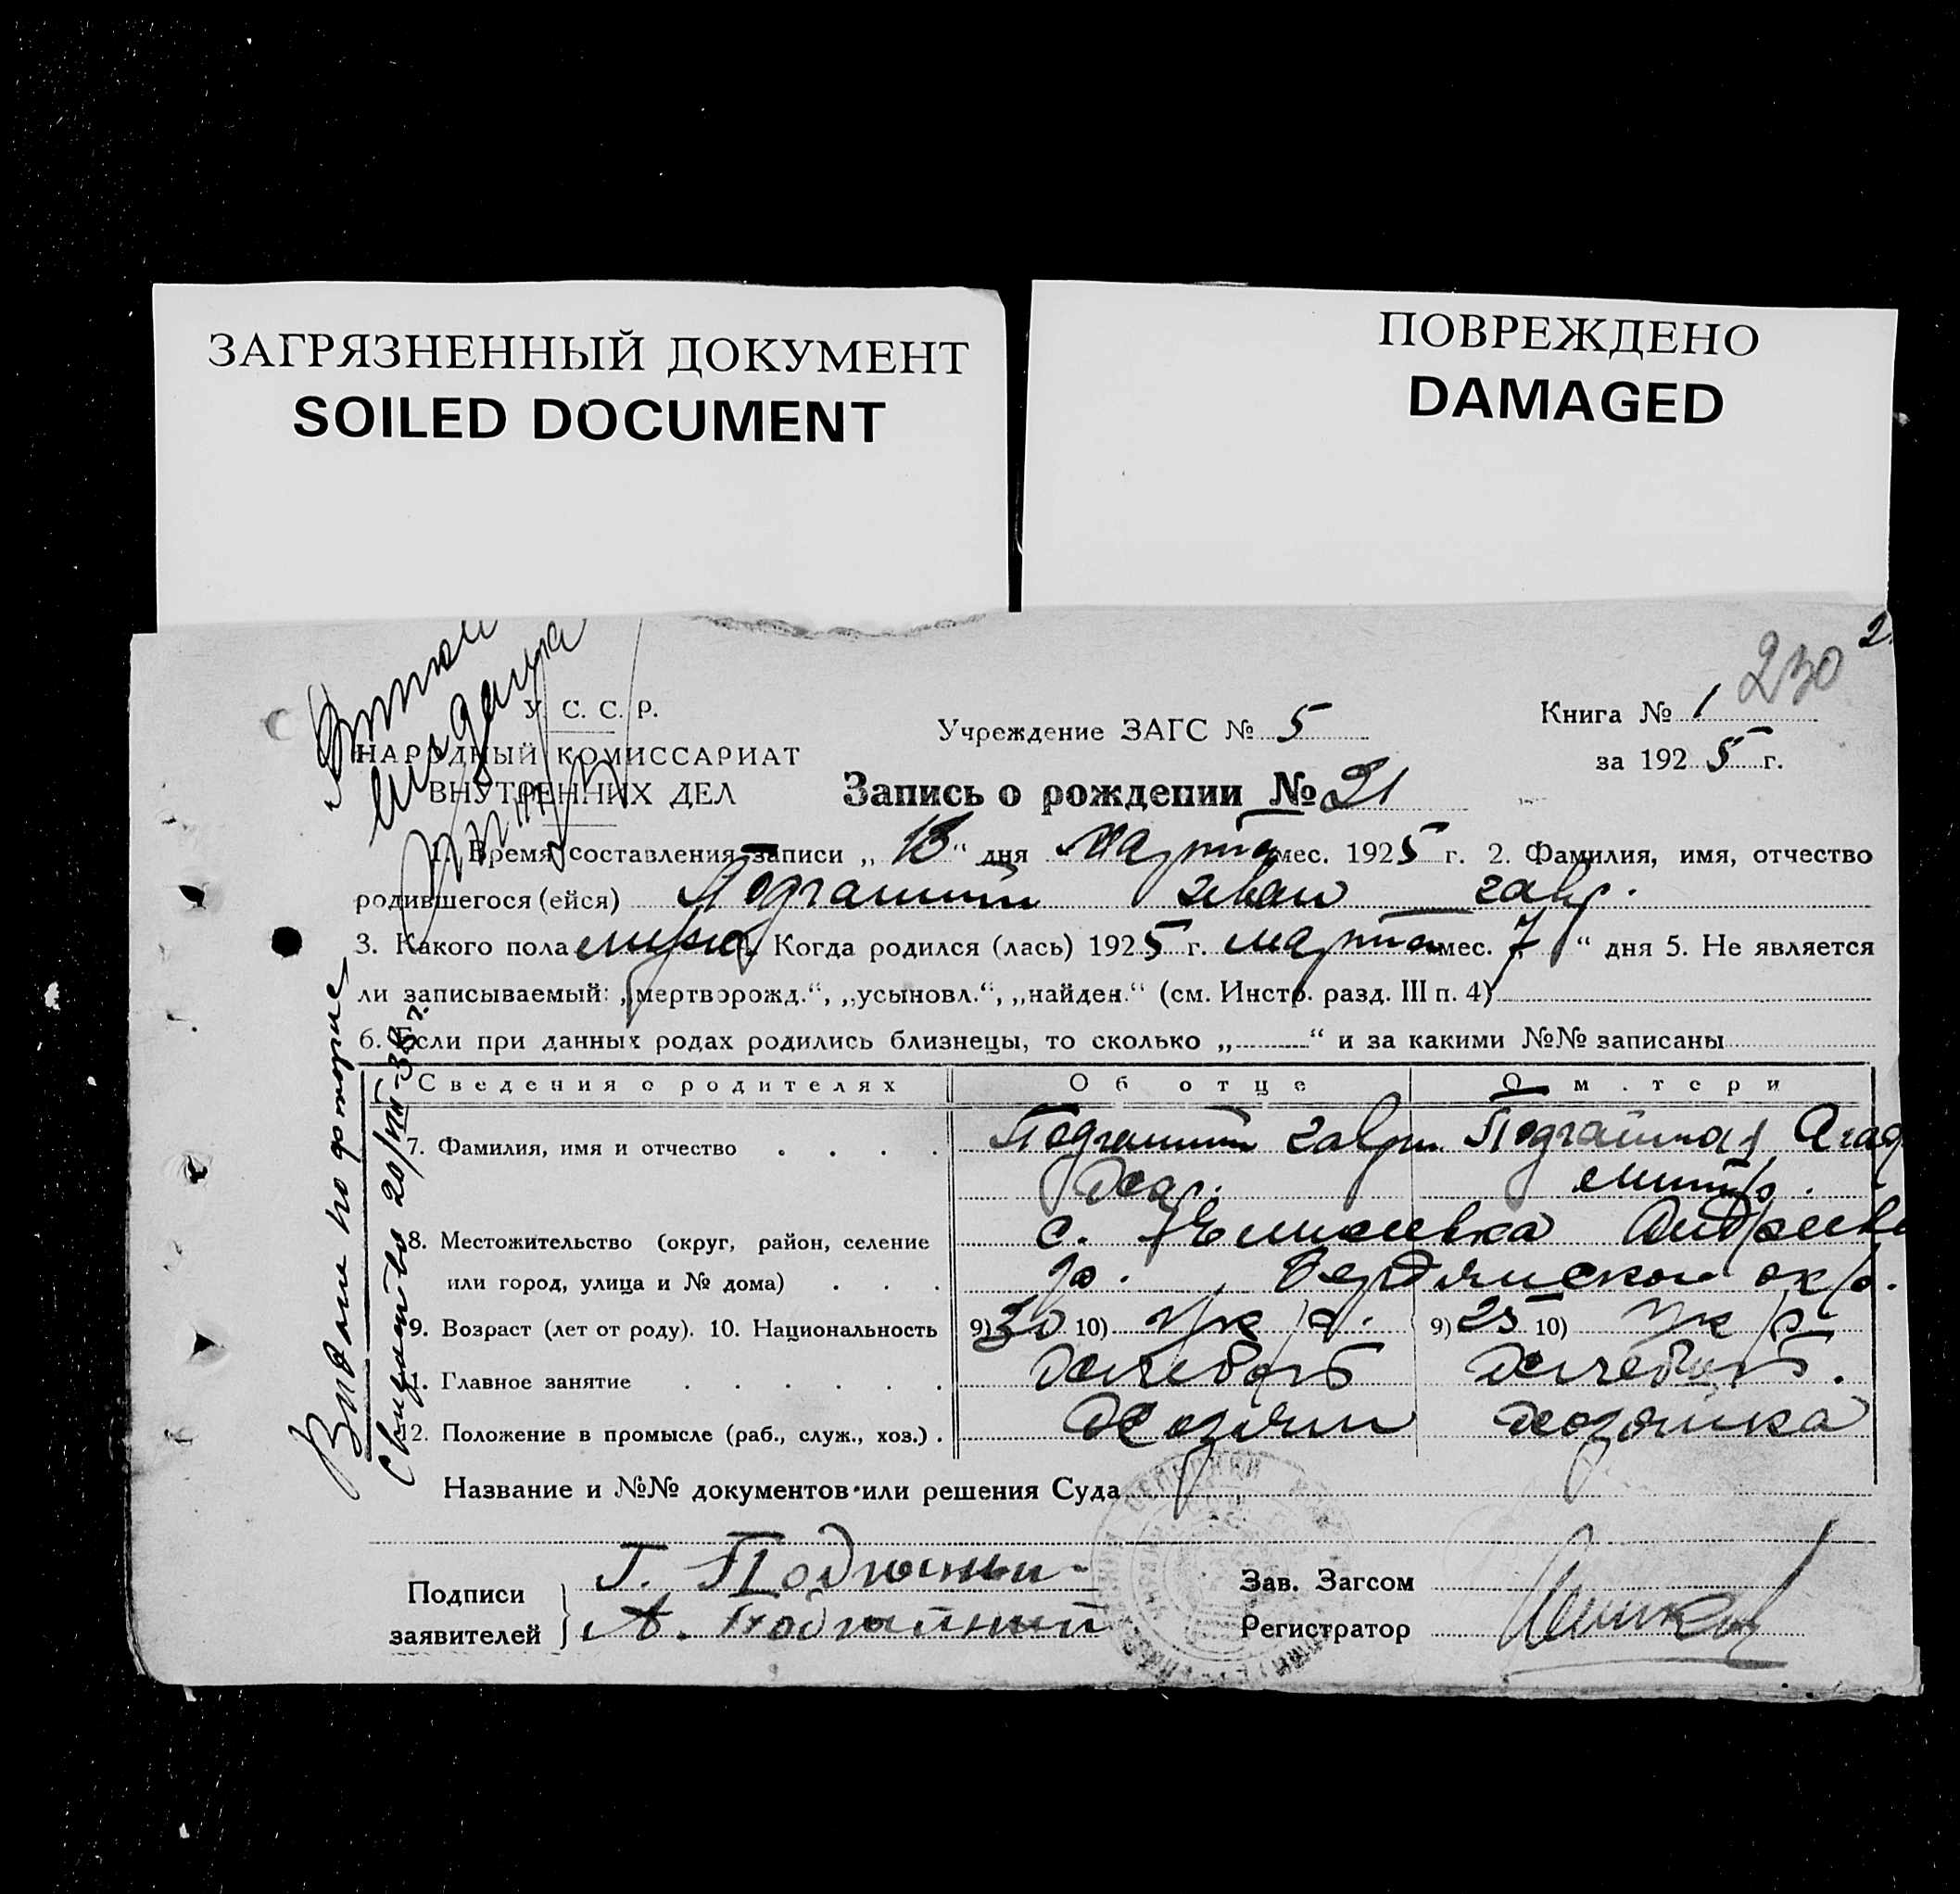 ЗАГРЯЗНЕННЫЙ ДОКУМЕНТ
SOILED DOCUMENT
ПОВРЕЖДЕНО
DAMAGED
230
У. С. С. Р.
НАРОДНЫЙ КОМИССАРИАТ
ВНУТРЕННИХ ДЕЛ
Учреждение ЗАГС № 5
Книга № 1
за 1925 г.
Запись о рождении № 21
1. Время составления записи „13“ дня Марта мес. 1925 г. 2. Фамилия, имя, отчество
родившегося (ейся) Подгайний Иван Гавр.
3. Какого пола муж. Когда родился (лась) 1925 г. марта мес. 7 “ дня 5. Не является
ли записываемый: „мертворожд.“, „усыновл.“, „найден.“ (см. Инстр. разд. III п. 4)
6. Если при данных родах родились близнецы, то сколько „ “ и за какими №№ записаны
Сведения о родителях Об отце О м.тери
7. Фамилия, имя и отчество Подгайний Гаври Подгайная Агаф
Хар. Дмитр.
8. Местожительство (округ, район, селение
или город, улица и № дома)
с. Андреев
ра. Бердянской окр.
9. Возраст (лет от роду). 10. Национальность 9) 30 10) Укр. 9) 25 10) Укр
11. Главное занятие Хлебороб Хлебороб.
12. Положение в промысле (раб., служ., хоз.) Хозяин хозяйка
Название и №№ документов или решения Суда
Подписи
заявителей
Г. Подгайний
А. Подгайний
Зав. Загсом
Регистратор
Видано повторне
Свидоцтво 20/VII-38 г.